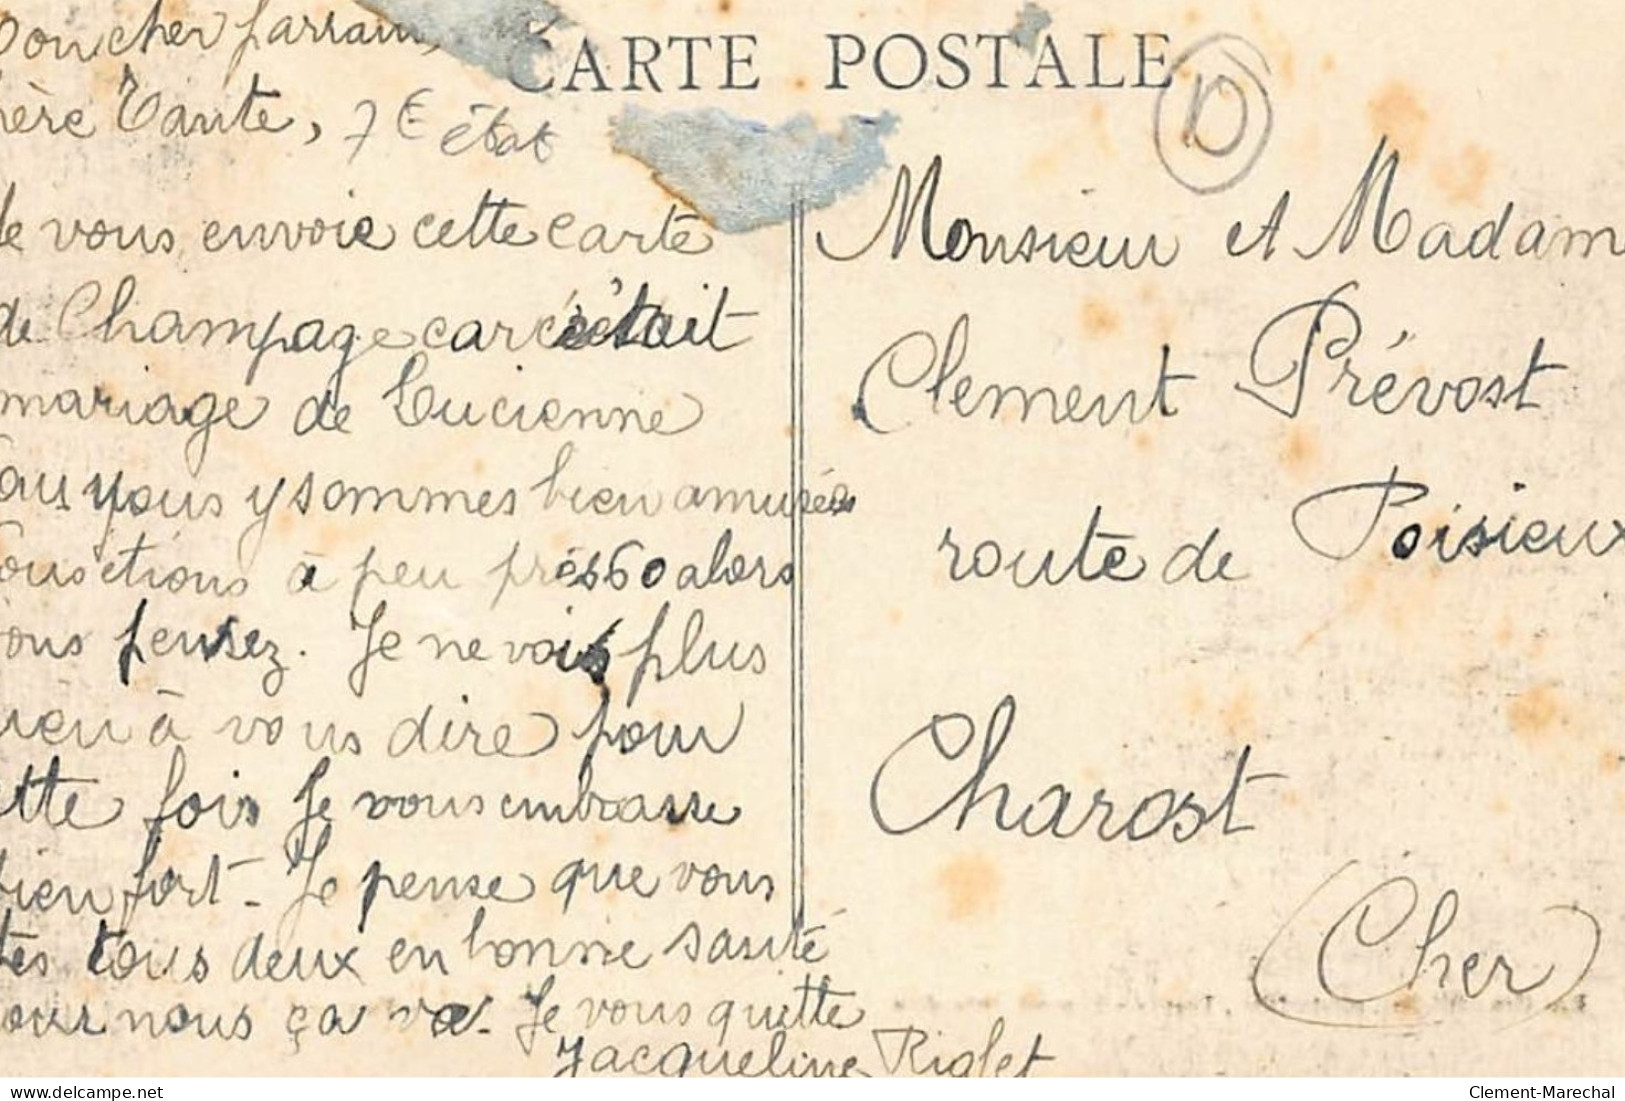 Mon cher parrain,
hère Tante, 7 E état
Je vous envoie cette carte
de Champage car c'était
mariage de Lucienne
nous y sommes bien amusées
ous étions à peu près 60 alors
vous pensez. Je ne vois plus
rien à vous dire pour
ette fois Je vous embrasse
bien fort - Je pense que vous
tes tous deux en bonne santé
our nous ça va - Je vous quitte
Jacqueline Riglet
CARTE POSTALE
10
Monsieur et Madam
Clement Prévost
route de Poisieux
Charost
(Cher)
Clement-Marechal